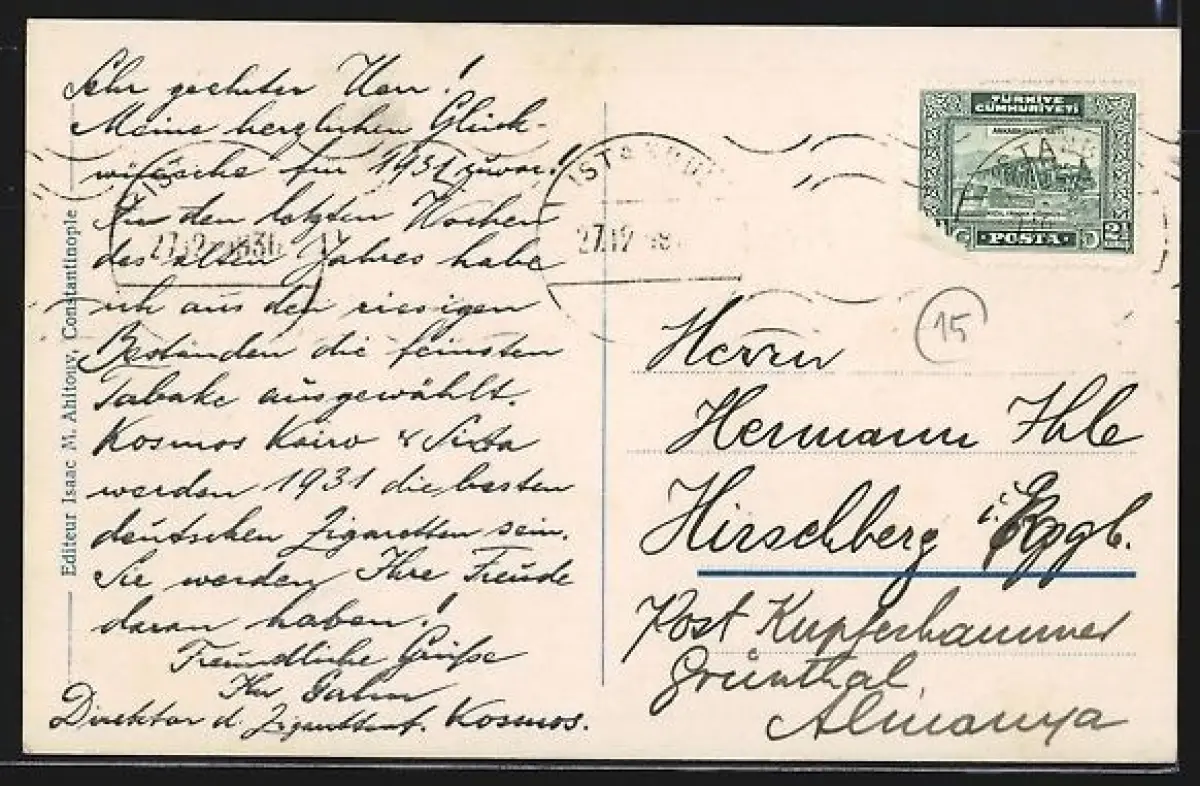 Sehr geehrter Herr!
Meine herzlichen Glück-
wünsche für 1931 zuvor!
In den letzten Wochen
des alten Jahres habe
ich aus den riesigen
Beständen die feinsten
Tabake ausgewählt.
Kosmos Kairo & Sixta
werden 1931 die besten
deutschen Zigaretten sein.
Sie werden Ihre Freude
daran haben!
Freundliche Grüße
Ihr
Direktor d. Zigarettenf. Kosmos.
Editeur Isaac M. Ahitouv, Constantinople
ISTANBUL
27.12
TÜRKİYE
CÜMHURİYETİ
POSTA
2½
15
Herrn
Hermann Ihle
Hirschberg i. Erzgb.
Post Kupferhammer
Grünthal,
Almanya